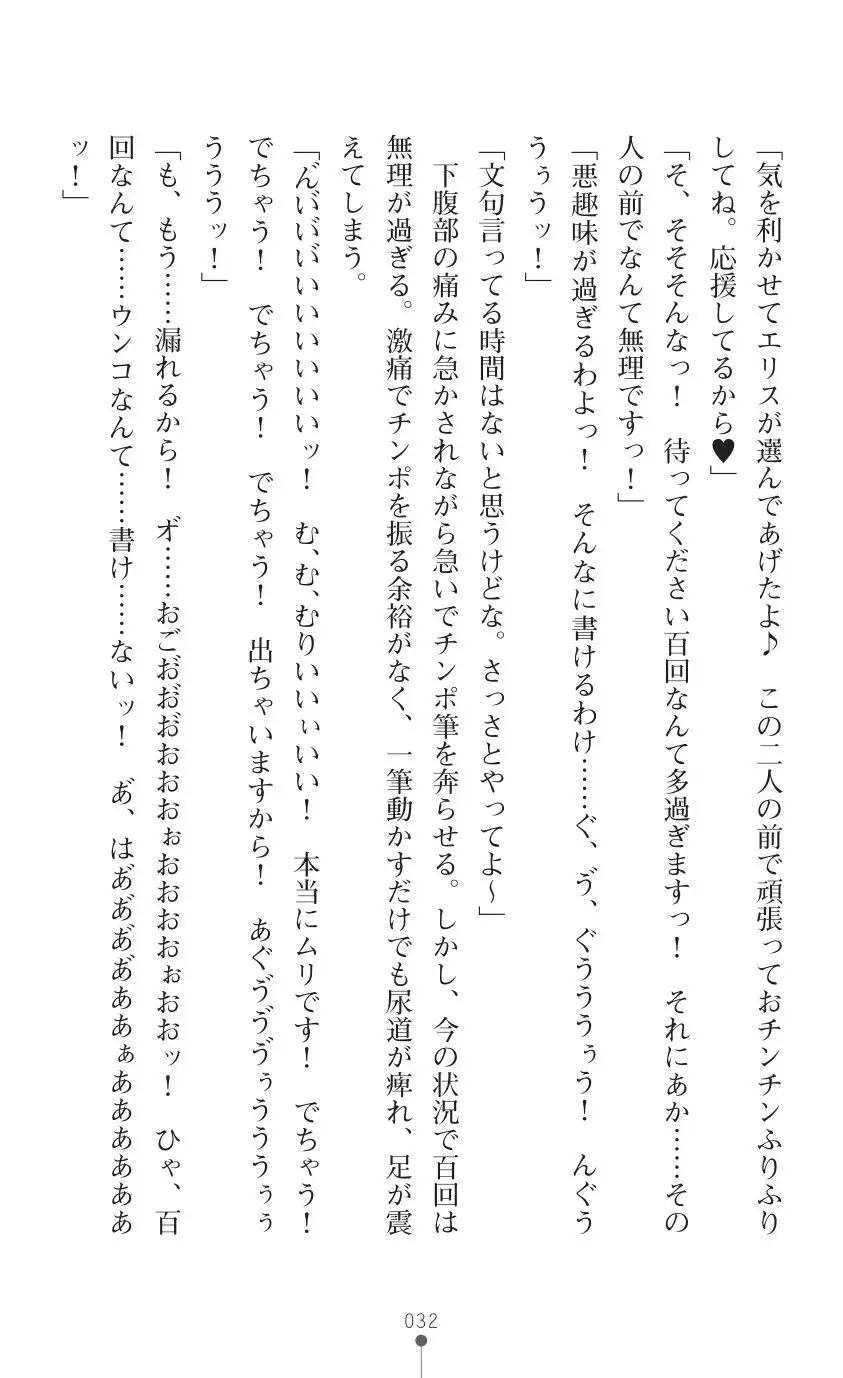 「気を利かせてエリスが選んであげたよ♪　この二人の前で頑張っておチンチンふりふり
してね。応援してるから♥」
「そ、そそそんなっ！　待ってください百回なんて多過ぎますっ！　それにあか……その
人の前でなんて無理ですっ！」
「悪趣味が過ぎるわよっ！　そんなに書けるわけ……ぐ、ゔ、ぐうううぅう！　んぐう
うぅうッ！」
「文句言ってる時間はないと思うけどな。さっさとやってよ～」
　下腹部の痛みに急かされながら急いでチンポ筆を奔らせる。しかし、今の状況で百回は
無理が過ぎる。激痛でチンポを振る余裕がなく、一筆動かすだけでも尿道が痺れ、足が震
えてしまう。
「ん゙い゙い゙い゙いいいいいいッ！　む、む、むりいいぃいい！　本当にムリです！　でちゃう！
でちゃう！　でちゃう！　でちゃう！　出ちゃいますから！　あぐゔゔゔぅうううぅぅ
うううッ！」
「も、もう……漏れるから！　オ゙……おごお゙お゙お゙おおおぉおおおおぉおおッ！　ひゃ、百
回なんて……ウンコなんて……書け……ないッ！　あ゙、はあ゙あ゙あ゙あ゙ああぁああああああ
ッ！」
032